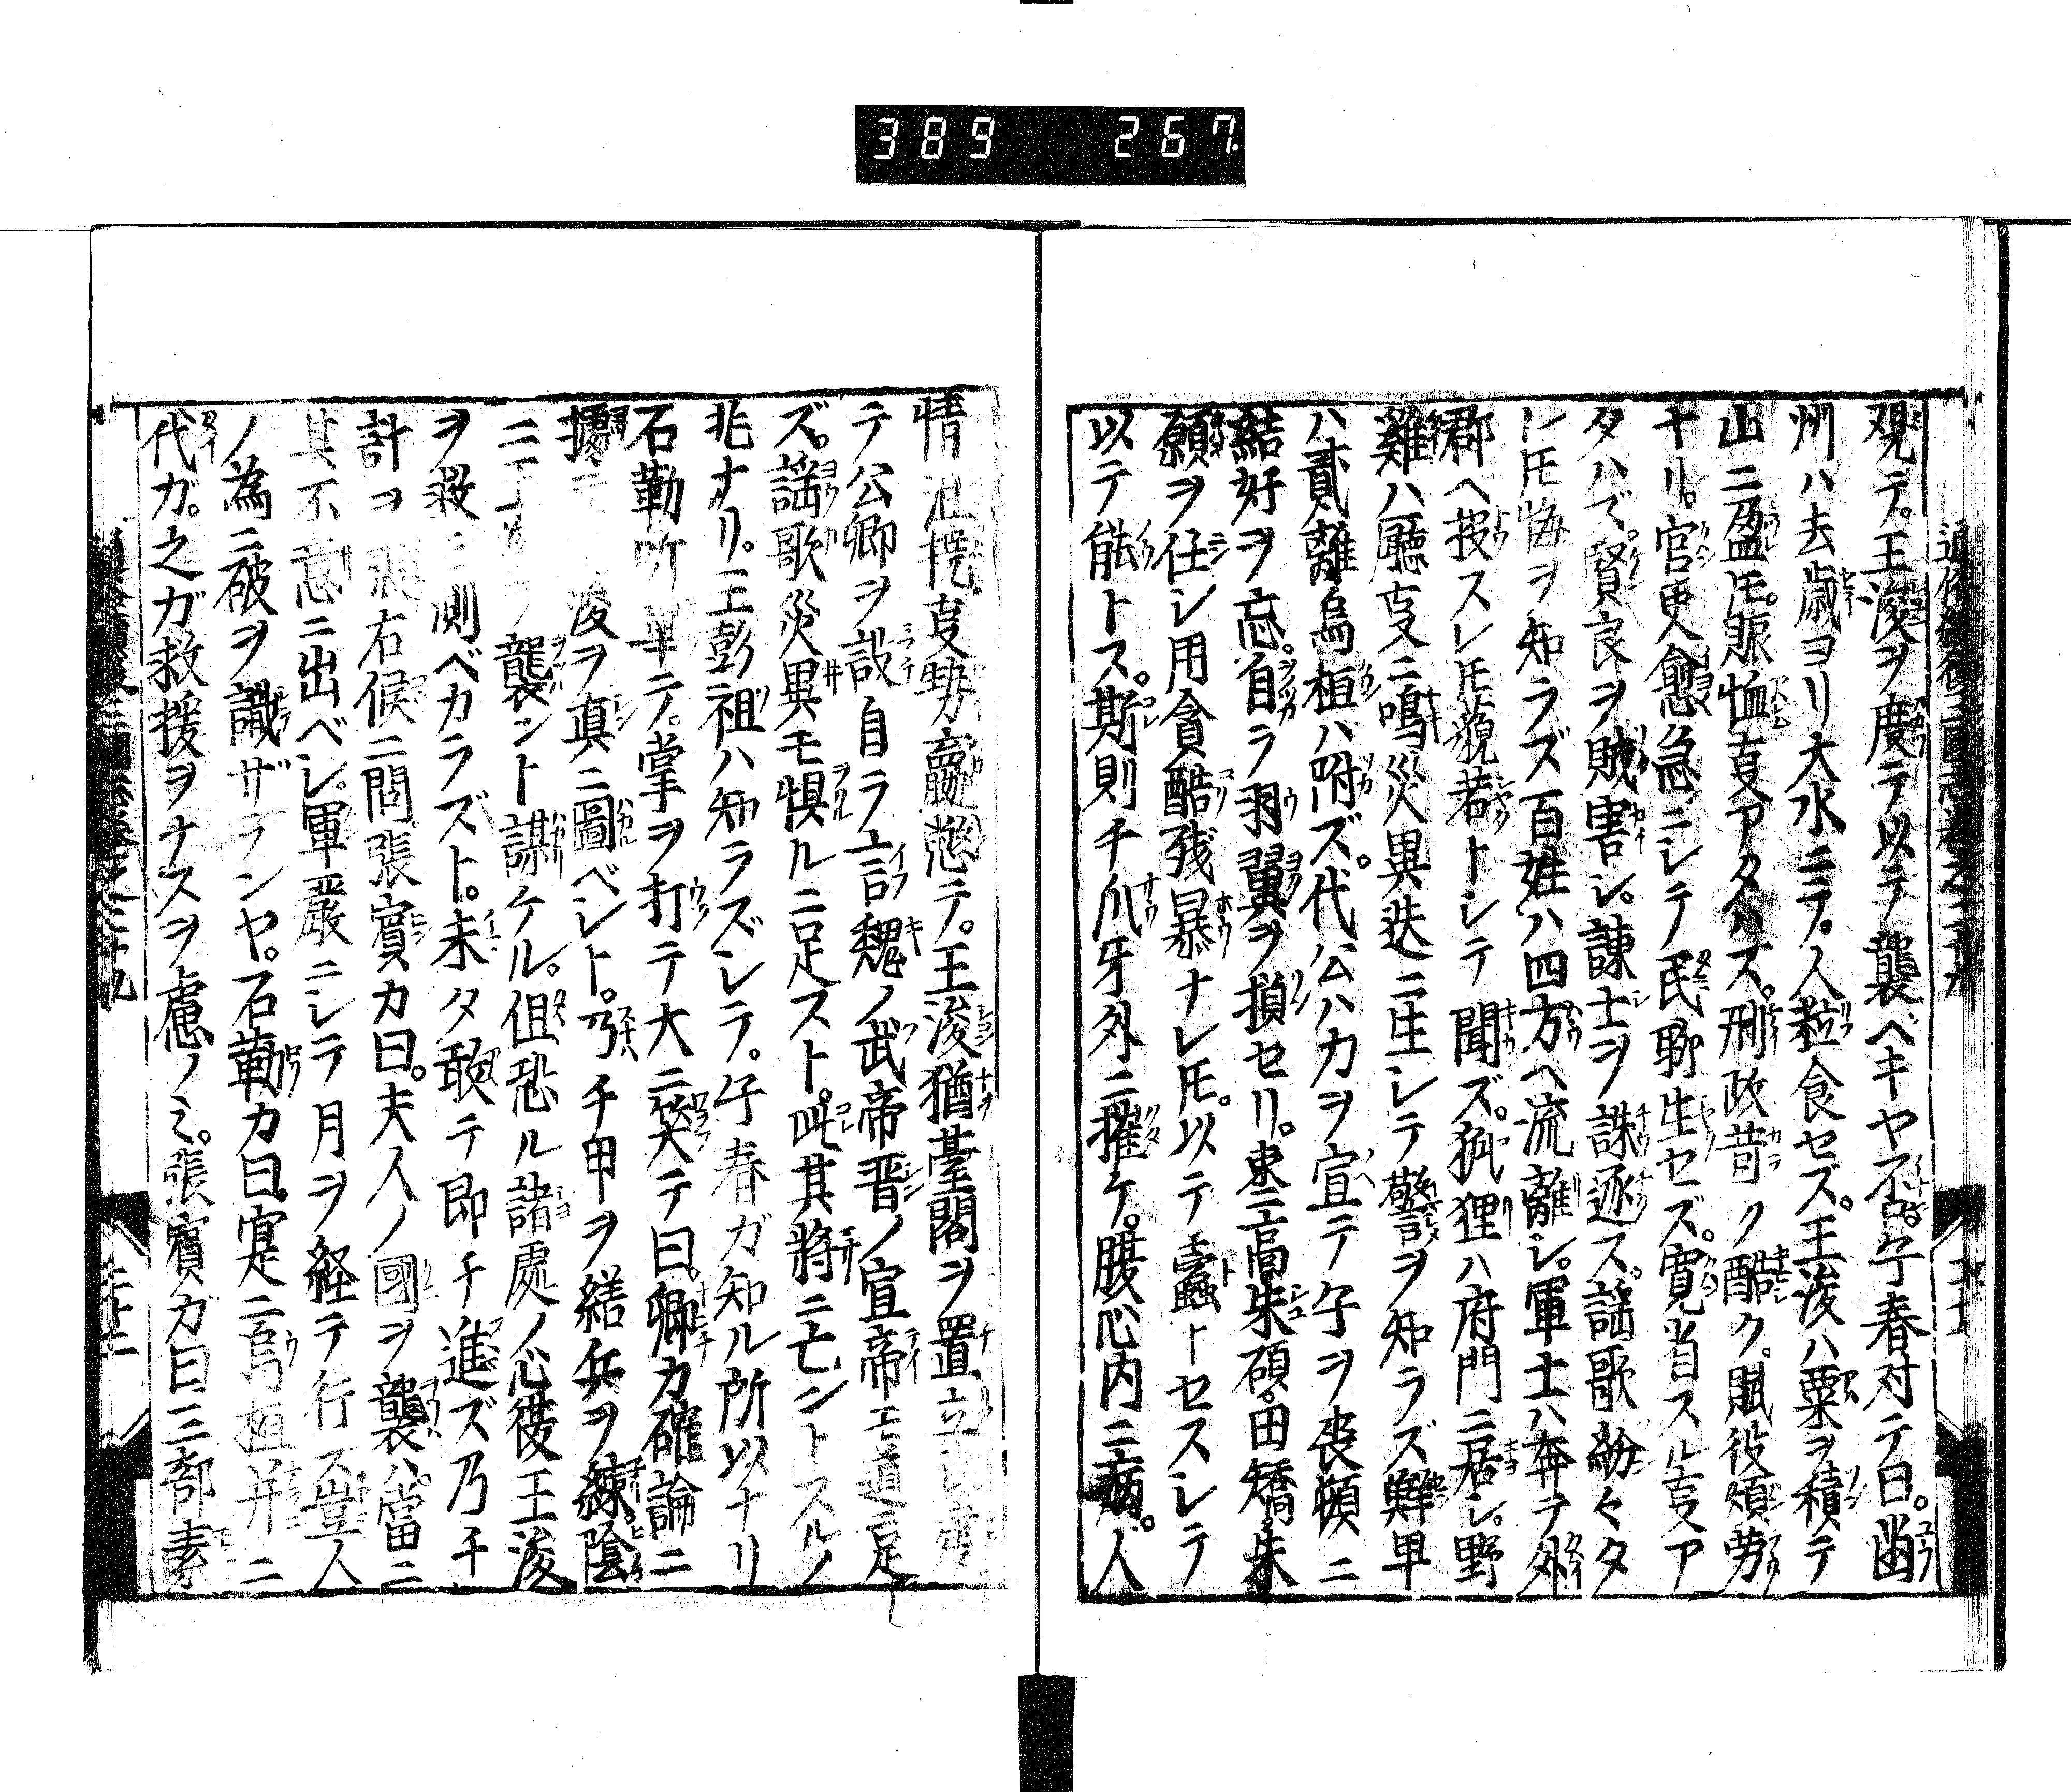 389 267
観テ。王浚ヲ度テ以テ襲ベキヤ不ヤ。子春対テ曰。幽
州ハ去歳ヨリ大水ニテ。人粒食セズ。王浚ハ粟ヲ積テ
山ニ盈𪜈。賑恤叓アタハズ。刑政苛ク酷ク。賦役煩労
ナリ。官吏愈急ニシテ民聊生セズ。寛省スル叓ア
タハズ。賢良ヲ賊害シ。諌士ヲ誅逐ス。謡歌紛々タ
レ𪜈悔ヲ知ラズ百姓ハ四方ヘ流離シ。軍士ハ奔テ外
郡ヘ投スレ𪜈藐若トシテ聞ズ。狐狸ハ府門ニ居シ。野
雞ハ廳叓ニ鳴災異迭ニ生シテ警ヲ知ラズ鮮卑
ハ貳離烏桓ハ附ズ。代公ハカヲ宣テ子ヲ喪頓ニ
結好ヲ忘。自ラ羽翼ヲ損セリ。東ニ高朱碩。田矯。朱
願ヲ任シ用貪酷残暴ナレ𪜈。以テ蠹トセスシテ
以テ能トス。斯則チ爪牙外ニ摧ケ。腹心内ニ病。人
情沮擾叓勢羸憊テ。王浚猶臺閣ヲ置立
テ公卿ヲ設自ラ言魏ノ武帝晋ノ宣帝モ道ニ足
ズ。謡歌災異モ惧ルニ足ストス。此其将ニ亡ントスルノ
兆ナリ。王彭祖ハ知ラズシテ。子春ガ知ル所以ナリ
石勒听畢テ。掌ヲ打テ大ニ笑テ曰。卿カ確論ニ
據テ 浚ヲ真ニ圖ベシト。乃チ甲ヲ繕兵ヲ練陰
ニ 襲ント謀ケル。但恐ル諸處ノ心後王浚
ヲ救 測ベカラズト。未タ敢テ即チ進ズ乃チ
計ヲ 右候ニ問張賓カ曰。夫人ノ國ヲ襲ハ當ニ
其不意ニ出ベシ。軍嚴ニシテ月ヲ経テ行ズ豈人
ノ為ニ破ヲ識ザランヤ。石勒カ曰。寔ニ烏桓并ニ
代ガ。之ガ救援ヲナスヲ慮ノミ。張賓ガ曰三部素